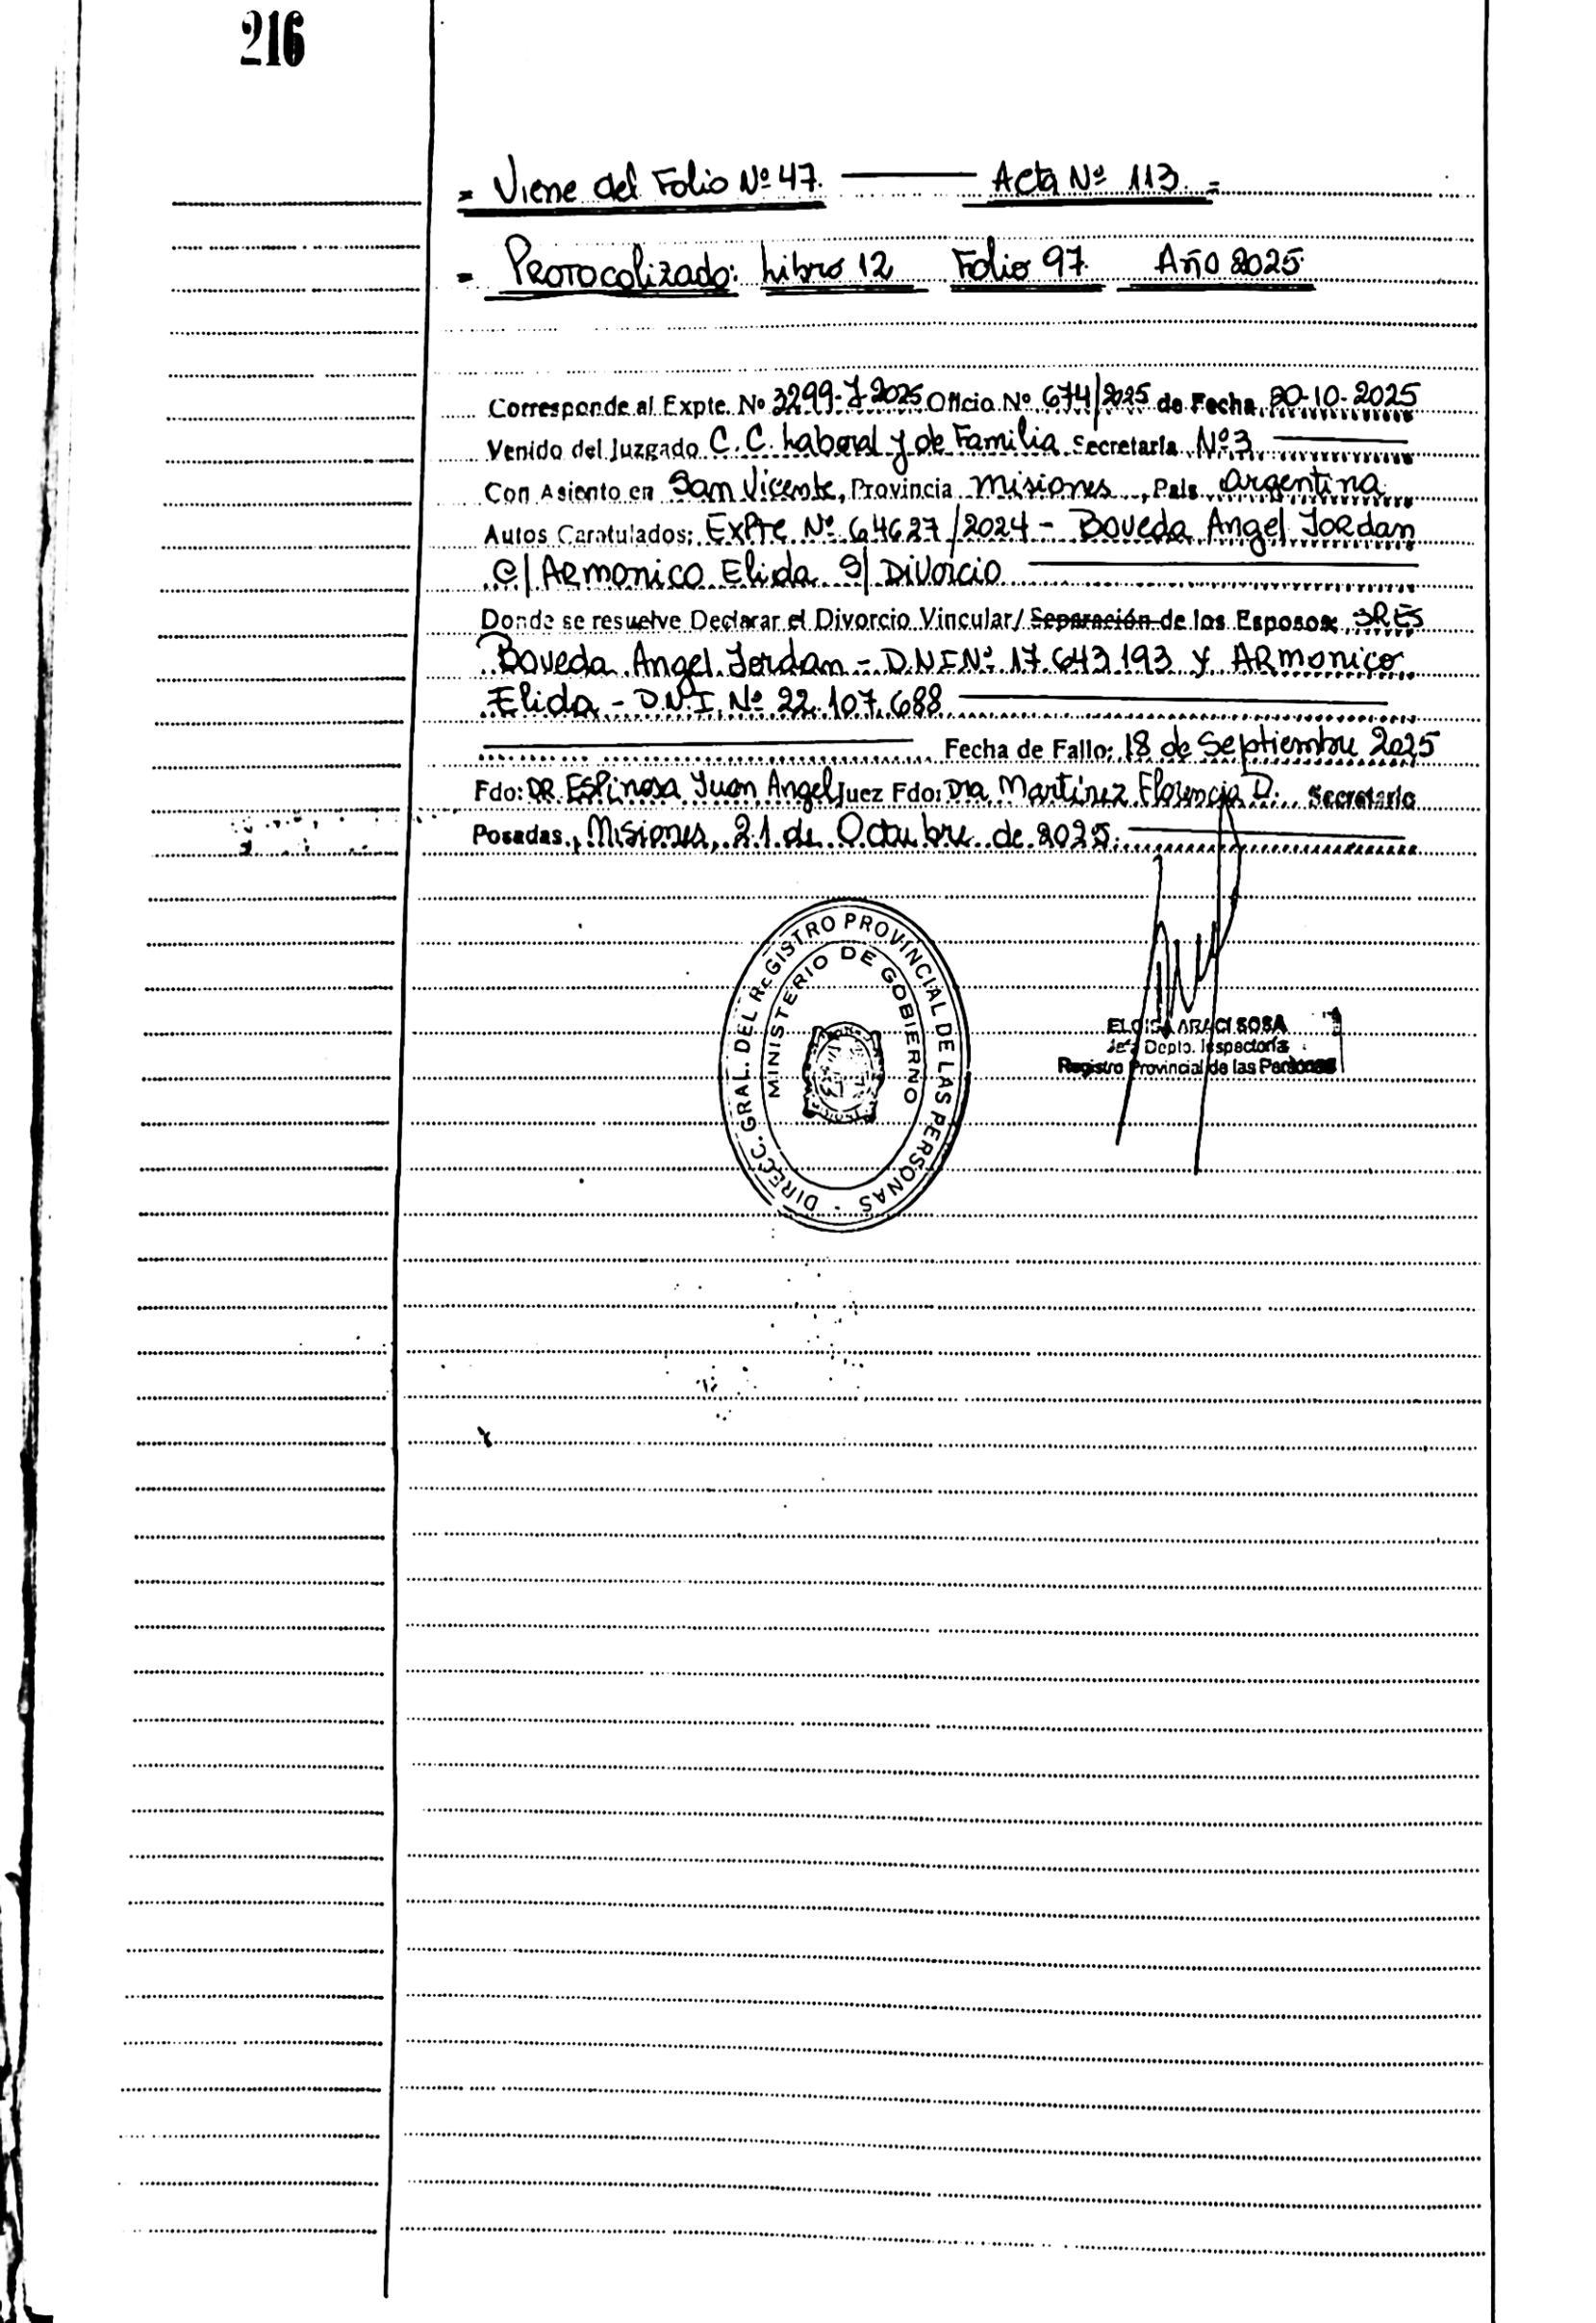 216
= Viene del Folio Nº 47. Acta Nº 113. =
= Protocolizado: Libro 12 Folio 97 Año 2025
Corresponde al Expte. Nº 3299-J-2025 Oficio Nº 674/2025 de Fecha 20-10-2025
Venido del Juzgado C.C. Laboral y de Familia Secretaría Nº 3
Con Asiento en San Vicente, Provincia Misiones, País Argentina
Autos Caratulados: Expte Nº 64627/2024 - Boveda Angel Jordan
C/ Armonico Elida S/ Divorcio
Donde se resuelve Declarar el Divorcio Vincular/ Separación de los Esposos SRES
Boveda Angel Jordan - D.N.I Nº 17.643.193 y Armonico
Elida - D.N.I. Nº 22.107.688
Fecha de Fallo: 18 de Septiembre 2025
Fdo: DR Espinosa Juan Angel Juez Fdo: Dra Martinez Florencia D. Secretario
Posadas, Misiones, 21 de Octubre de 2025.
DIRECC. GRAL. DEL REGISTRO PROVINCIAL DE LAS PERSONAS
MINISTERIO DE GOBIERNO
ELOISA ARACI SOSA
Jefa Depto. Inspectoría
Registro Provincial de las Personas